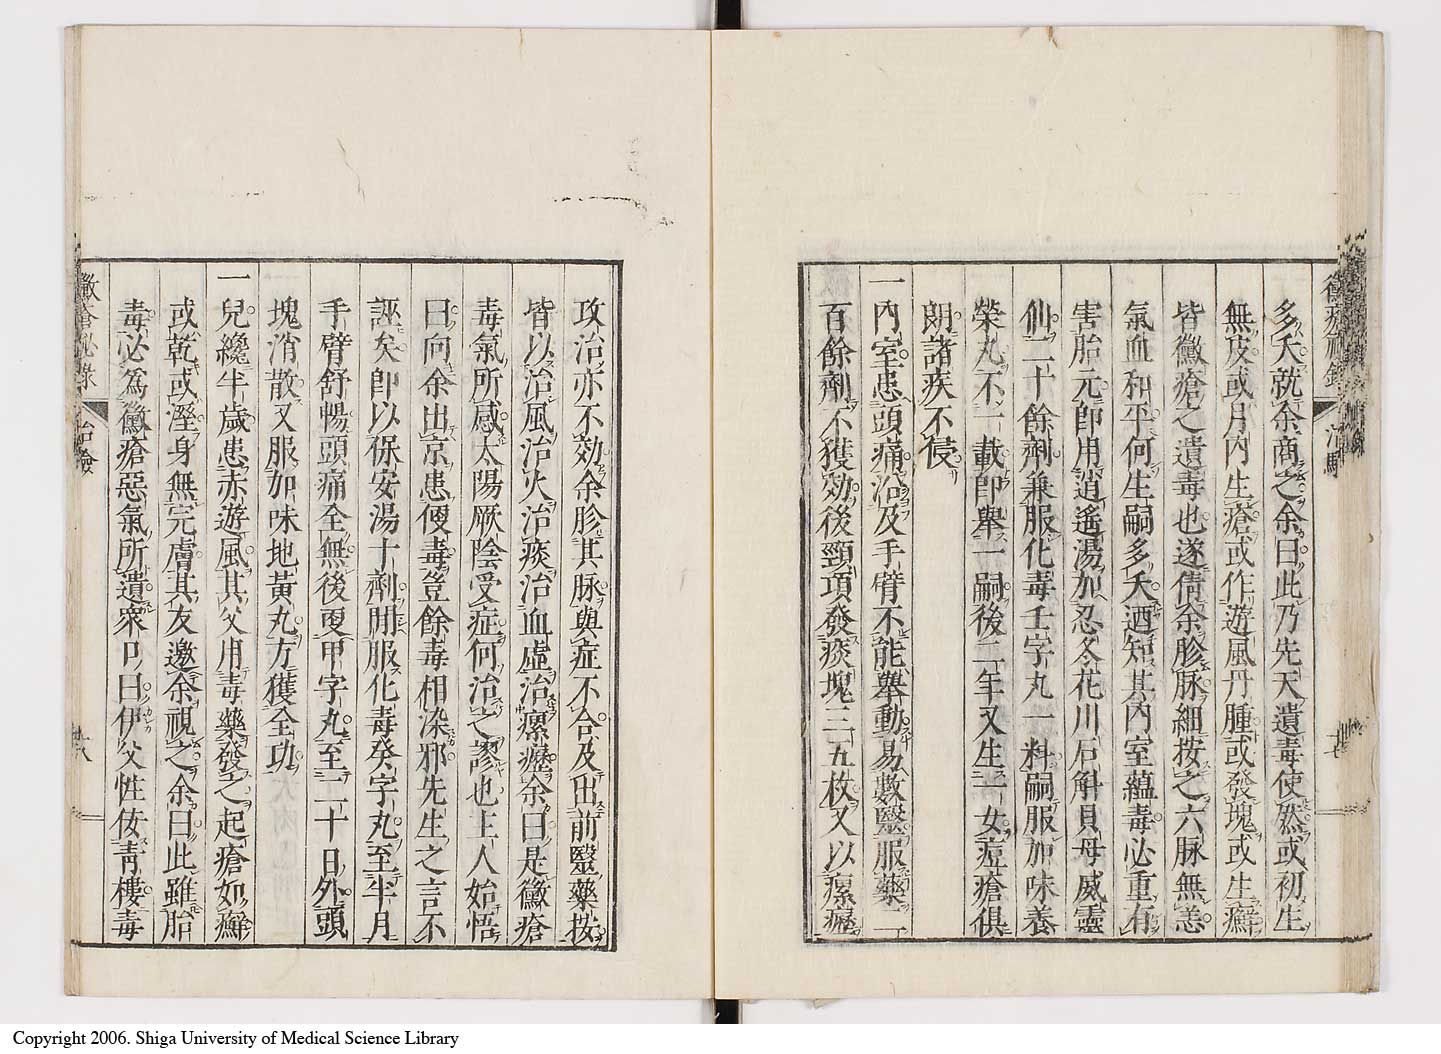 黴瘡秘錄
治驗
多夭就余商之余曰此乃先天遺毒使然或初生
無皮或月内生瘡或作遊風丹腫或發塊或生癬
皆黴瘡之遺毒也遂倩余胗脉細按之六脉無恙
氣血和平何生嗣多夭迺知其内室蘊毒必重有
害胎元卽用逍遙湯加忍冬花川石斛貝母威靈
仙二十餘劑兼服化毒壬字丸一料嗣服加味養
榮丸不一載卽舉一嗣後二年又生一女痘瘡俱
朗諸疾不侵
一内室患頭痛沿及手臂不能舉動易數醫服藥二
百餘劑不獲効後頸項發痰塊三五枚又以瘰癧
攻治亦不効余胗其脉與症不合及出前醫藥按
皆以治風治火治痰治血虛治瘰癧余曰是黴瘡
毒氣所感太陽厥陰受症何治之謬也主人始悟
曰向余出京患便毒豈餘毒相染邪先生之言不
誣矣卽以保安湯十劑間服化毒癸字丸至半月
手臂舒暢頭痛全無後更甲字丸至二十日外頭
塊消散又服加味地黃丸方獲全功
一兒纔半歲患赤遊風其父用毒藥發之起瘡如癬
或乾或溼身無完膚其友邀余視之余曰此雖胎
毒必爲黴瘡惡氣所遺衆卩曰伊父性佞靑樓毒
黴瘡秘錄
治驗